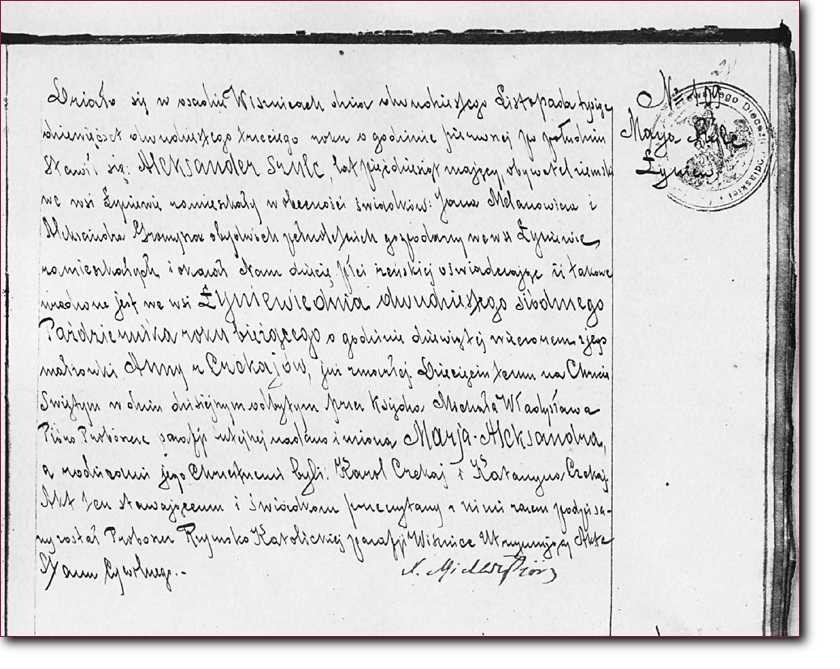 Działo się w osadzie Wisznicach dnia dwudziestego Listopada tysiąc
dziewięćset dwudziestego trzeciego roku o godzinie pierwszej po południu
Stawił się: Aleksander Szulc, lat pięćdziesiąt mający, obywatel ziemski
we wsi Żyniewie zamieszkały w obecności świadków: Jana Melanowicza i
Aleksandra obydwóch pełnoletnich gospodarzy we wsi Żyniewie
zamieszkałych i okazał Nam dziecię płci żeńskiej oświadczając iż takowe
urodzone jest we wsi Żyniewie dnia dwudziestego siódmego
Października roku bieżącego o godzinie dziewiątej wieczorem z jego
małżonki Anny z Czekajów, już zmarłej Dziecięciu temu na Chrzcie
Świętym w dniu dzisiejszym odbytym przez Księdza Michała Władysława
Pióro Proboszcza parafji tutejszej nadano imiona Marja-Aleksandra,
a rodzicami jego Chrzestnemi byli: Karol Czekaj i Katarzyna Czekaj
Akt ten stawającemu i świadkom przeczytany z nimi razem podpisa-
ny został Proboszcz Rzymsko Katolickiej parafji Wisznice Utrzymujący Akta
Stanu Cywilnego.-
X. Mich Wł Pióro
No
Marja
Żyniew